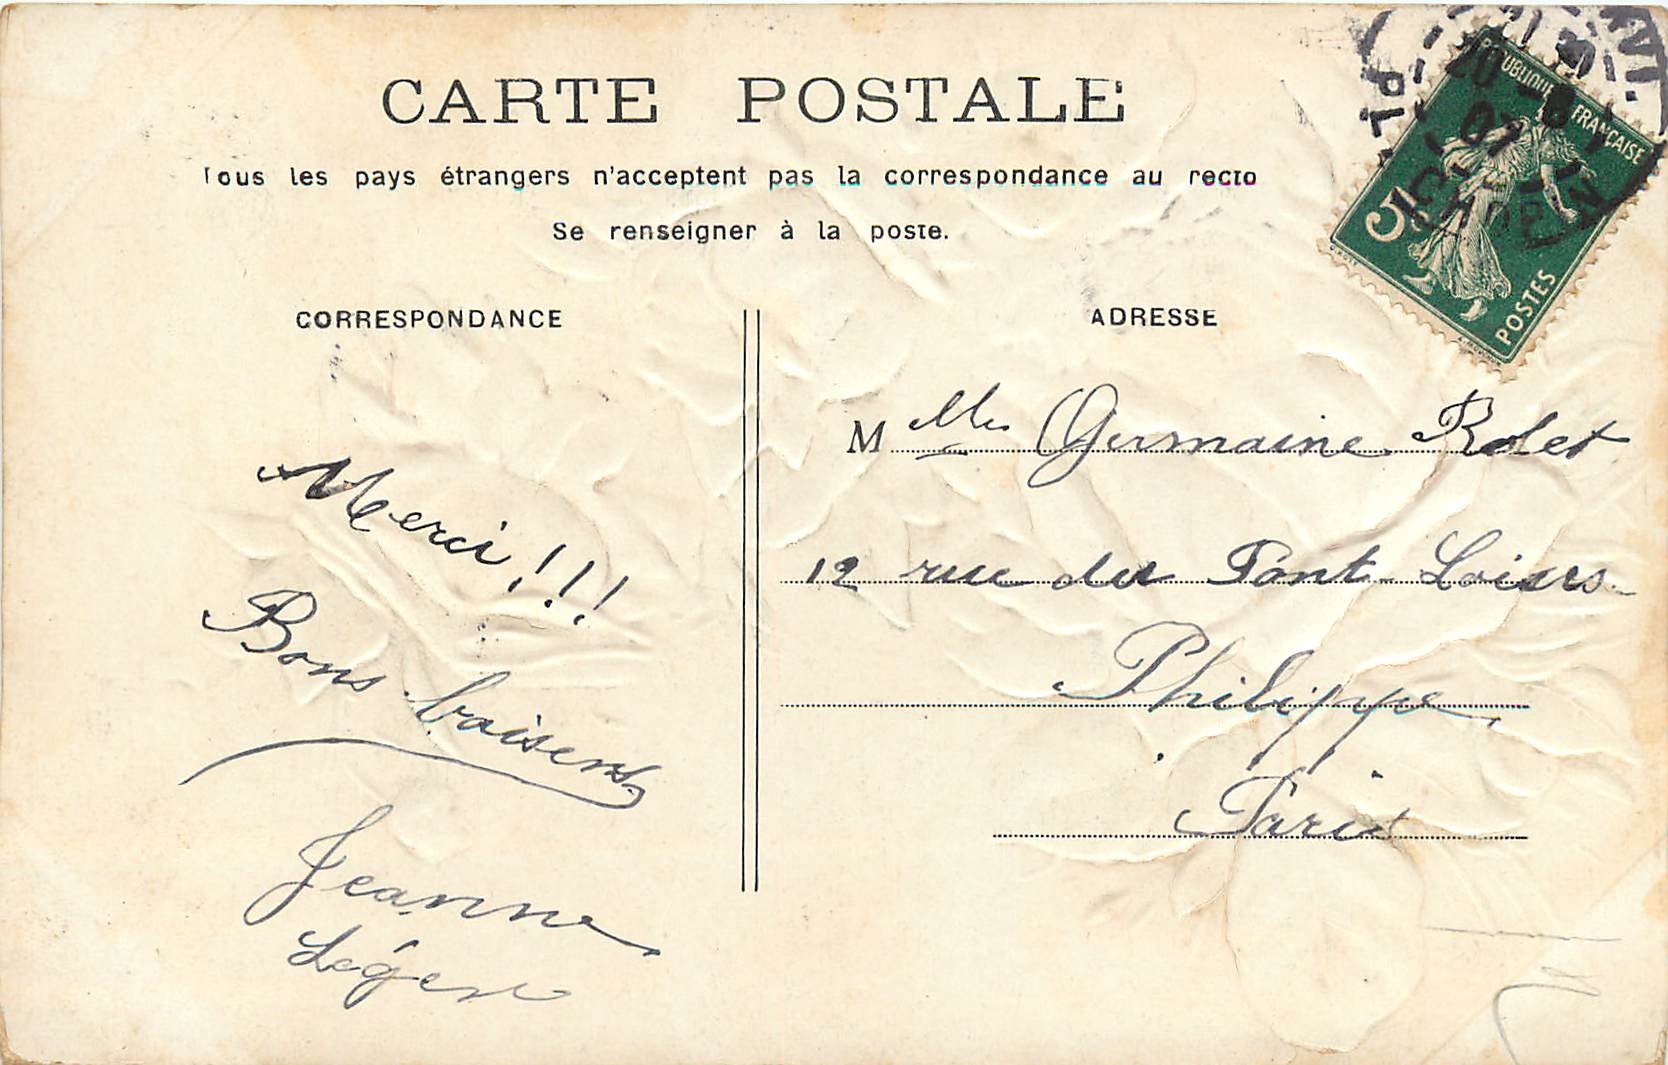 CARTE POSTALE
Tous les pays étrangers n'acceptent pas la correspondance au recto
Se renseigner à la poste.
CORRESPONDANCE
ADRESSE
REPUBLIQUE FRANÇAISE
5
POSTES
Merci!!!
Bons baisers
Jeanne
Léger
M elle Germaine Rolet
12 rue du Pont-Loius
Philippe
Paris